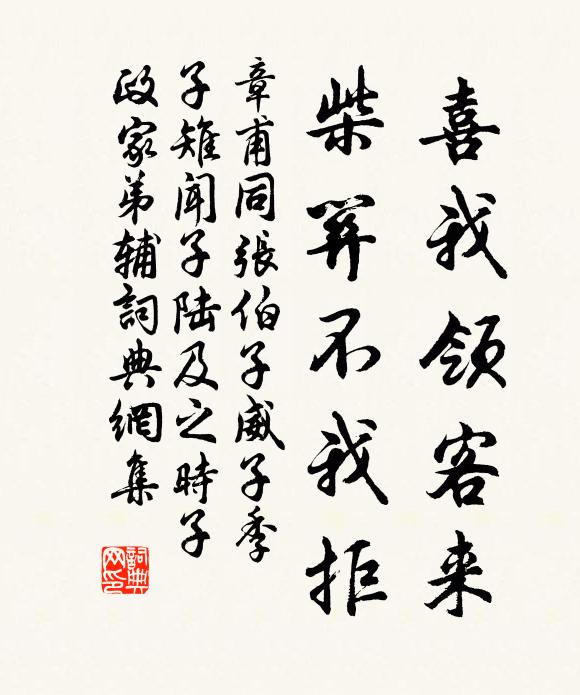 喜我领客来
柴关不我拒
章甫同張伯子威子季
子雉闻子陆及之時子
政家弟辅詞典網集
詞典网印